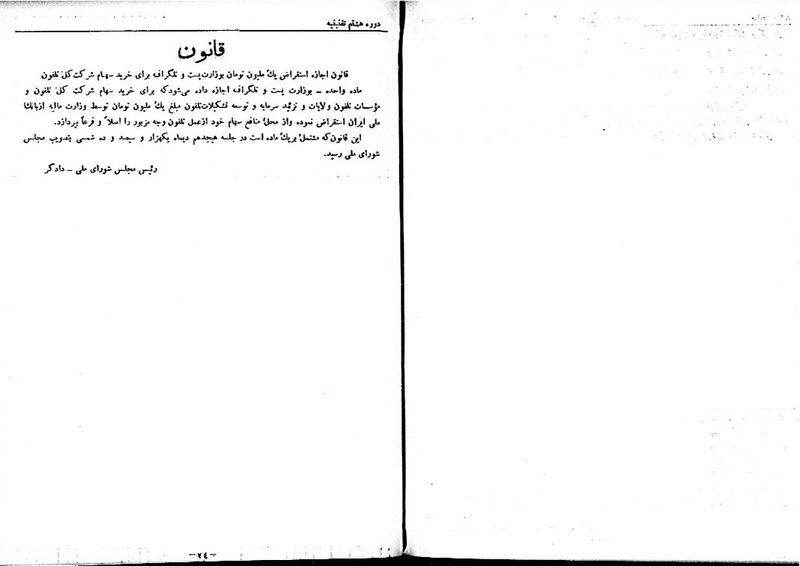 دوره هشتم تقنینیه
قانون
قانون اجازه استقراض یك ملیون تومان بوزارت پست و تلگراف برای خرید سهام شرکت کل تلفون
ماده واحده ـ بوزارت پست و تلگراف اجازه داده می‌شود که برای خرید سهام شرکت کل تلفون و
مؤسسات تلفون ولایات و تزئید سرمایه و توسعه تشکیلات تلفون مبلغ یك ملیون تومان توسط وزارت مالیه از بانك
ملی ایران استقراض نموده و از محل منافع سهام خود از عمل تلفون وجه مزبور را اصلاً و فرعاً بپردازد.
این قانون که مشتمل بریك ماده است در جلسه هیجدهم دیماه یکهزار و سیصد و ده شمسی بتصویب مجلس
شورای ملی رسید.
رئیس مجلس شورای ملی ـ دادگر
-٢٤-